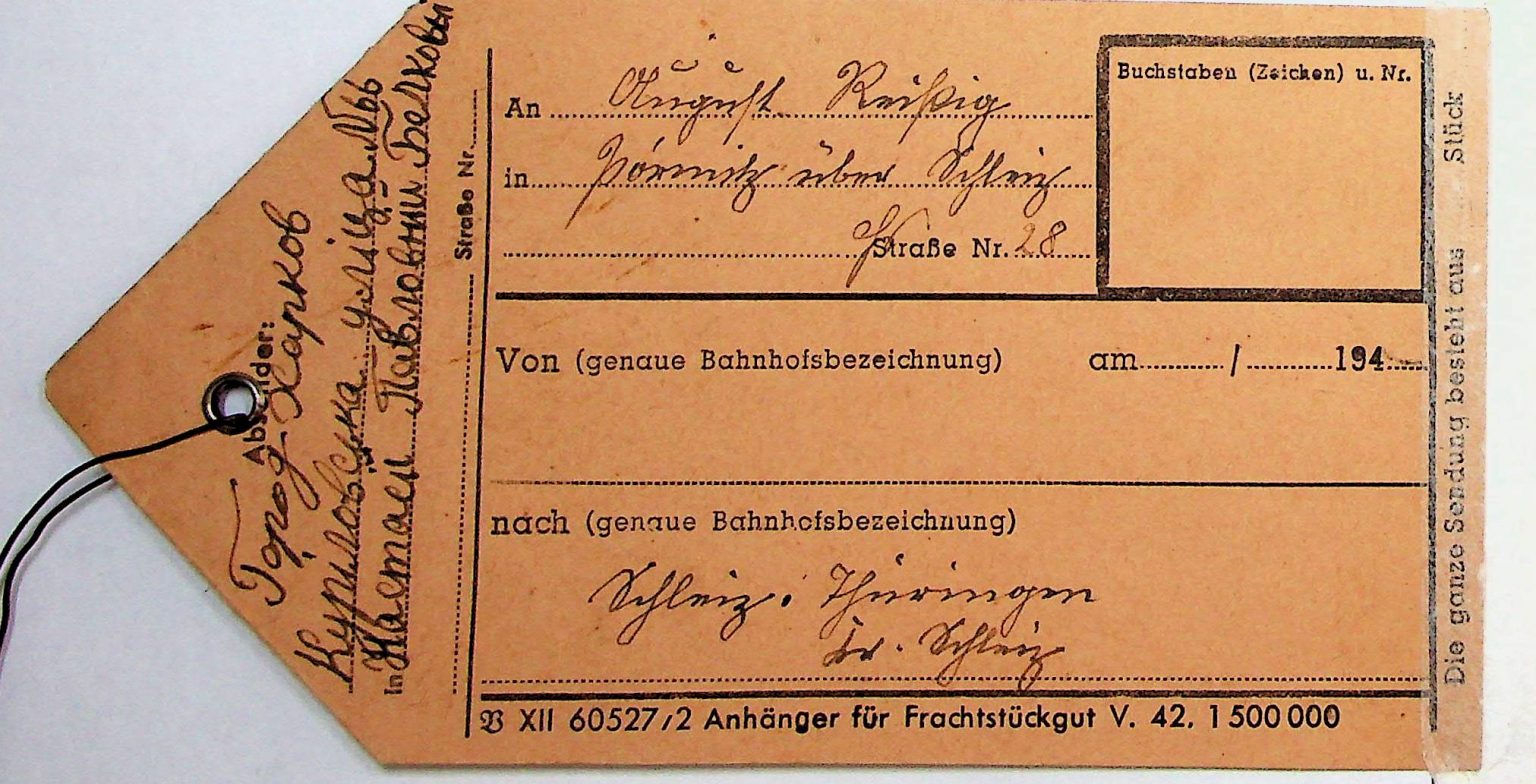 Absender:
Город Харков
Куриловська улица №66
In
Straße Nr.
An August Reißig
in Pörmitz über Schleiz
Straße Nr. 28
Buchstaben (Zeichen) u. Nr.
Von (genaue Bahnhofsbezeichnung) am / 194
nach (genaue Bahnhofsbezeichnung)
Schleiz. Thüringen
Kr. Schleiz
𝔙 XII 60527/2 Anhänger für Frachtstückgut V. 42. 1500000
Die ganze Sendung besteht aus Stück